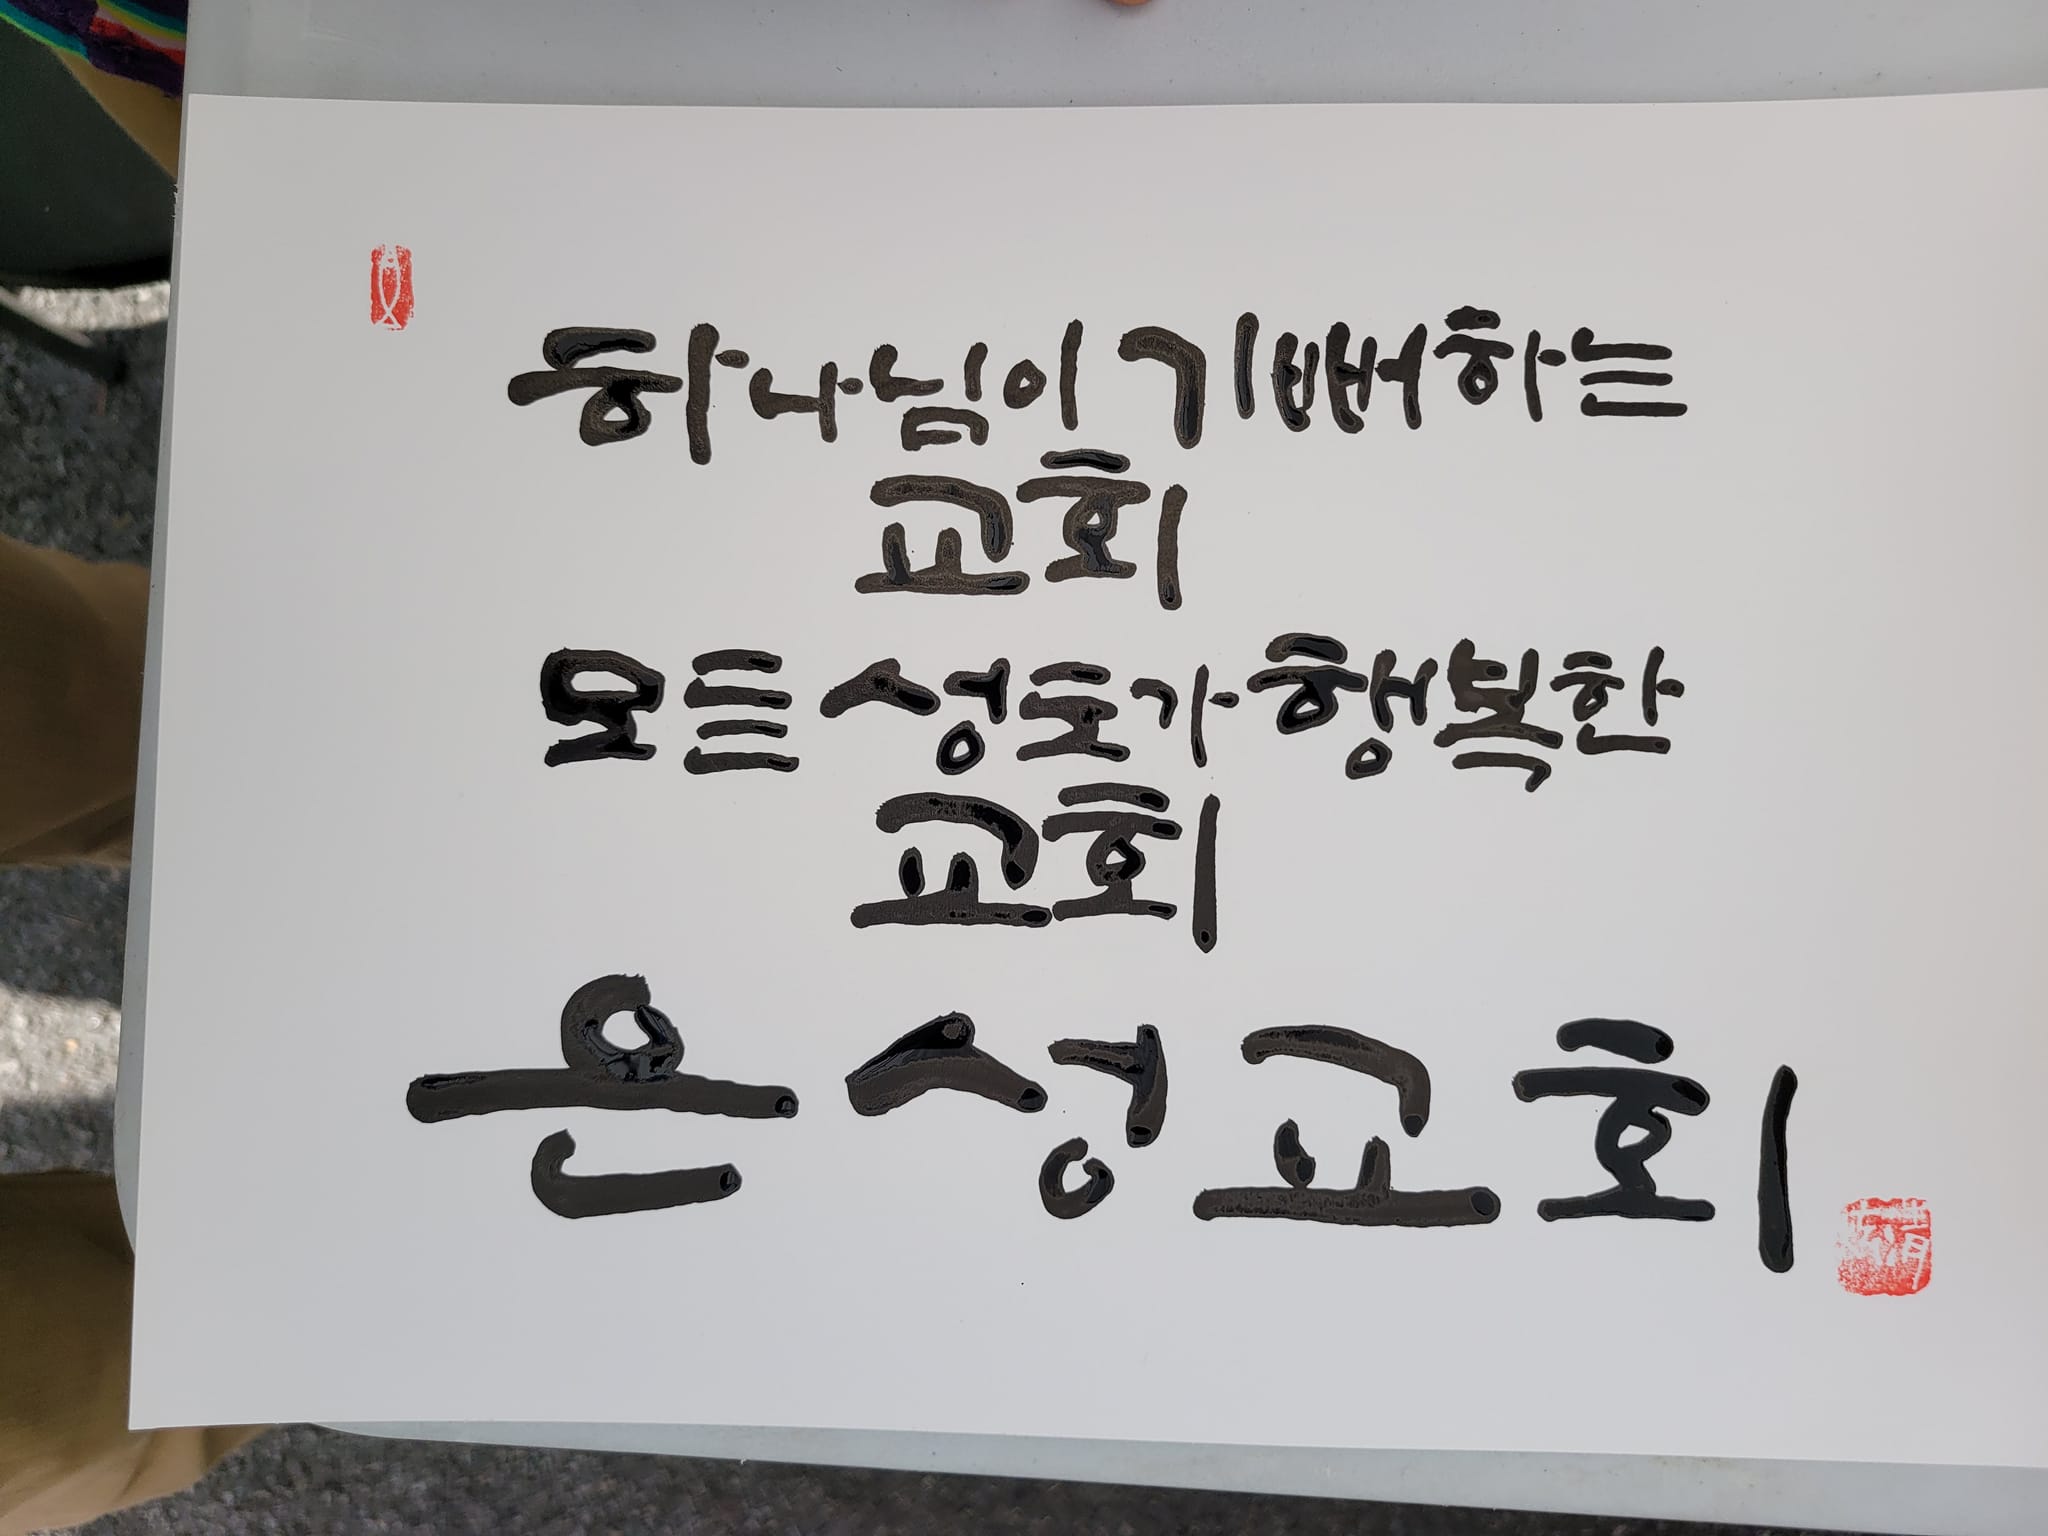 하나님이 기뻐하는
교회
모든 성도가 행복한
교회
은성교회